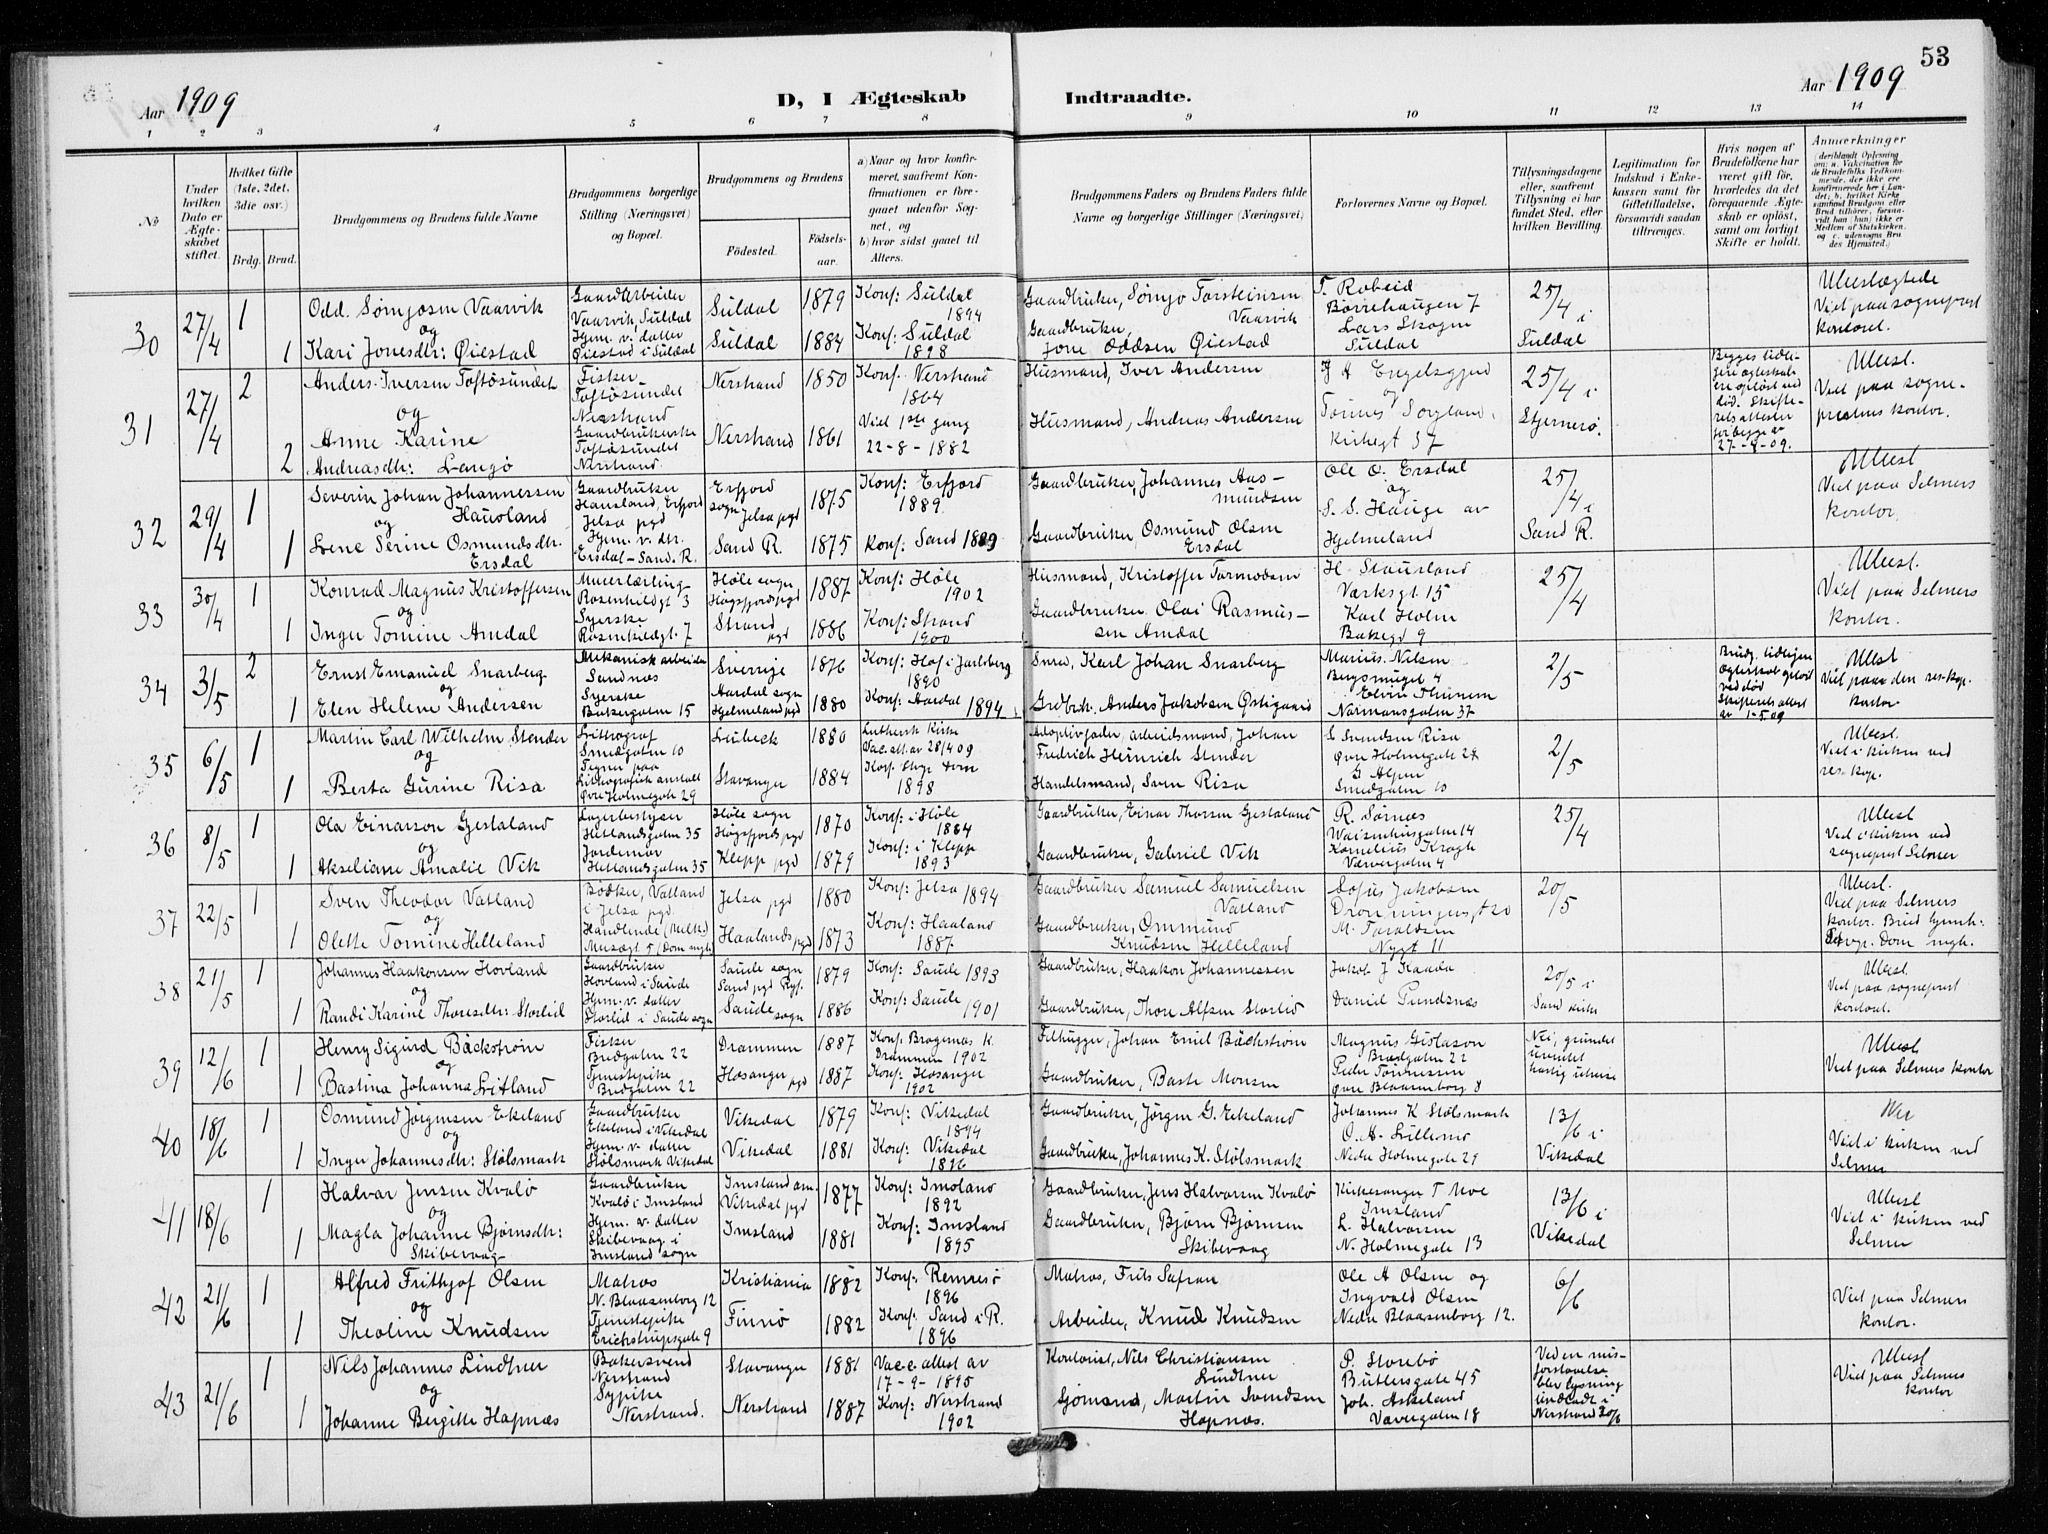 53
Aar 1909
D, I Ægteskab
Indtraadte.
Aar 1909
1 2 3 4 5 6 7 8 9 10 11 12 13 14
No
Under hvilken Dato er Ægteskabet stiftet.
Hvilket Gifte (1ste, 2det, 3die osv.)
Brdg. Brud.
Brudgommens og Brudens fulde Navne
Brudgommens borgerlige Stilling (Næringsvei) og Bopæl.
Brudgommens og Brudens
Fødested.
Fødselsaar.
a) Naar og hvor konfirmeret, saafremt Konfirmationen er foregaaet udenfor Sognet, og
b) hvor sidst gaaet til Alters.
Brudgommens Faders og Brudens Faders fulde Navne og borgerlige Stillinger (Næringsvei)
Forlovernes Navne og Bopæl.
Tillysningsdagene eller, saafremt Tillysning ei har fundet Sted, efter hvilken Bevilling.
Legitimation for Indskud i Enkekassen samt for Giftetilladelse, forsaavidt saadan tiltrænges.
Hvis nogen af Brudefolkene har været gift før, hvorledes da det foregaaende Ægteskab er opløst, samt om lovligt Skifte er holdt.
Anmerkninger
30
27/4
1
Odd. Sømjosen Vaarvik
og
1
Kari Jonesdtr: Øiestad
Gaardarbeider
Vaarvik, Suldal
Hjem. v. datter
Øiestad i Suldal
Suldal 1879
Suldal 1884
Konf: Suldal
1894
Konf: Suldal
1898
Gaardbruker, Sømjo Torsteinsen
Vaarvik
Gaardbruker,
Jone Oddsen Øiestad
T. Robeid
Børrehaugen 7
Lars Skogen
Suldal
25/4 i
Suldal
Ubeslægtede
Viet paa sogneprest
kontoret.
31
27/4
2
Anders Iversen Toftøsundet
og
Anne Karine
2
Andreasdtr: Langø
Fisker
Toftøsundet
Nerstrand
Gaardbrukerske
Toftøsundet
Nerstrand.
Nerstrand 1850
Nerstrand 1861
Konf. Nerstrand
1864
Viet 1ste gang
22-8-1882
Husmand, Iver Andersen
Husmand, Andreas Andersen
og
Kirkegt 37
25/4 i
Stjernerø.
27-4-09.
Ubesl.
Viet paa sogneprestens kontor.
32
29/4
1
Severin Johan Johannessen
og Hausland
1
Lene Serine Osmundsdtr.
Ersdal
Gaardbruker
Hausland, Erfjord
Jelsa pgd
Hjem. v. dtr.
Ersdal - Sand. R.
Erfjord
sogn Jelsa pgd 1875
Sand R. 1875
Konf: Erfjord
1889.
Konf: Sand 1889
Gaardbruker, Johannes Aasmundsen
Gaardbruker, Osmund Olsen
Ersdal
Ole O. Ersdal
og
S. S. Hauge av
Hjelmeland
25/4 i
Sand R.
Ubesl
Viet paa Selmers
kontor.
33
30/4
1
Konrad Magnus Kristoffersen
og
1
Inger Tomine Amdal
Murerlærling
Rosenkildgt 3
Syerske
Rosenkildegt. 7
Høle sogn
Høgsfjord pgd 1887
Strand
pgd 1886
Konf: Høle
1902
Konf: Strand
1900
Husmand, Kristoffer Tormodsen
Gaardbruker Olai Rasmussen Amdal
H Stausland
Værksgt. 15
Karl Holm
Bakegd 9
25/4
Ubesl.
Viet paa Selmers
kontor.
34
3/5
2
Ernst Emanuel Snarberg
og
1
Elen Helene Andersen
Mekanisk arbeider
Sandnæs
Syerske
Bakergaten 15
Sverrige 1876
Aardal sogn
Hjelmeland pgd 1880
Konf: Hof i Jarlsberg
1890
Konf: Aardal 1894
Smed, Karl Johan Snarberg
Grdbrk. Anders Jakobsen Østigaard
Marius Nilsen
Bergsmuget 4
Normansgaten 37
2/5
Brudg. tidligere
Ægteskab opløst
ved død
Skifteretsattest
av 1-5.09
Ubesl
Viet paa den res. kap.
kontor.
35
6/5
1
Martin Carl Wilhelm Stender
og
1
Berta Gurine Risa
Litograf
Smedgaten 10
Tegner paa
Litografisk anstalt
Øvre Holmegate 29
Lübeck 1880
Stavanger 1884
Luthersk Kirke
Vac. att. av 28/4 09
Konf. Stvgr Dom
1898
Adoptivfader, arbeidsmand, Johan
Fredrich Heinrich Stender
Handelsmand, Sven Risa
S Svendsen Risa
Øvre Holmegate 24
Smedgaten 10
2/5
Ubesl.
Viet i kirken ved
res. kap.
36
8/5
1
Ola Einarson Gjestaland
og
1
Akseliane Amalie Vik
Lagerbestyrer
Hetlandsgaten 35
Jordemor
Hetlandsgaten 35
Høle sogn
Høgsfjords pgd 1870
Klepp pgd 1879
Konf: i Høle
1884
Konf: i Klepp
1893
Gaardbruker, Einar Thorsen Gjestaland
Gaardbruker, Gabriel Vik
R. Sørnes
Waisenhusgaten 14
Kornelius Kragh
Vævergaten 4
25/4
Ubesl
Viet i kirken ved
sogneprst Selmer
37
22/5
1
Sven Theodor Vatland
og
1
Olette Tomine Helleland
Bødker, Vatland
i Jelsa pgd.
Handlende (Melk.)
Musægt 5 (Dom mgh)
Jelsa pgd 1880
Haalands pgd 1873
Konf: Jelsa 1894
Konf: Haaland
1887.
Gaardbruker Samuel Samuelsen
Vatland
Gaardbruker, Ommund
Knudsen Helleland
Sofus Jakobsen
Dronningensgt 20
M. Taraldsen
Nygt 11
20/5
Ubesl.
Viet paa Selmers
kontor.
38
21/5
1
Johannes Haakonsen Hovland
og
1
Randi Karine Thoresdtr: Storlid
Gaardbruker
Hovland i Saude
Hjem. v. datter
Storlid i Saude sogn
Saude sogn
Sand pgd Ryf. 1879
Saude sogn 1886
Konf: Saude 1893
Konf: Saude
1901
Gaardbruker, Haakon Johannessen
Gaardbruker, Thore Alfsen Storlid
Jakob J Kaada
Daniel Pundsnæs
20/5 i
Sand kirke
Ubesl.
Viet paa sogneprest
kontoret.
39
12/6
1
Henry Sigurd Bäckstrøm
og
1
Bastina Johanna Litland
Fisker
Bredgaten 22
Tjenestepike
Bredgaten 22
Drammen 1887
Hosanger pgd 1887
Konf: Bragernæs K.
Drammen 1902
Konf: Hosanger
1902
Filhugger, Johan Emil Bäckstrøm
Gaardbruker, Baste Monsen
Magnus Gislason
Bredgaten 22
Peder Tønnessen
Øvre Blaasenborg 8
Nei, grundet
uventet
hastig utreise
Ubesl
Viet paa Selmers kontor
40
18/6
1
Osmund Jørgensen Ekeland
og
1
Inger Johannesdtr: Stølsmark
Gaardbruker
Ekeland i Vikedal
Hjem. v. datter
Stølsmark Vikedal
Vikedal 1879
Vikedal 1881
Konf: Vikedal
1894
Konf: Vikedal
1896
Gaardbruker, Jørgen G. Ekeland
Gaardbruker, Johannes K. Stølsmark
Johannes K Stølsmark
Nedre Holmegate 29
13/6 i
Vikedal
Nei
Viet i kirken ved
Selmer
41
18/6
1
Halvar Jensen Kvalø
og
1
Magla Johanne Bjørnsdtr:
Skibevaag
Gaardbruker
Kvalø i Imsland
Hjem. v. datter
Skibevaag i
Imsland sogn
Imsland an.
Vikedal pgd 1877
Imsland 1881
Konf: Imsland
1892
Konf: Imsland
1895
Gaardbruker, Jens Halvorsen Kvalø
Gaardbruker, Bjørn Bjørnsen
Skibevaag
Kirkesanger T Moe
Imsland
L. Halvorsen
N. Holmegate 13
13/6 i
Vikedal
Ubesl
Viet i kirken ved
Selmer
42
21/6
1
Alfred Frithjof Olsen
og
1
Theoline Knudsen
Matros
N. Blaasenborg 12
Tjenestepike
Erichstrupsgate 9
Kristiania 1882
Finnø 1882
Konf. Rennesø
1896
Konf. Sand i R.
1896
Matros, Frits Safran
Arbeider, Knud Knudsen
Ole A Olsen og
Ingvald Olsen
Nedre Blaasenborg 12.
6/6
Viet paa Selmers
kontor.
43
21/6
1
Nils Johannes Lindtner
og
1
Johanne Bergitte Hapnæs
Bakersvend
Nerstrand
Sypike
Nerstrand.
Stavanger 1881
Nerstrand 1887
Vacc. attest av
17-9-1895
Konf: Nerstrand
1902
Kontorist, Nils Christiansen
Lindtner
Sjømand, Martin Svendsen
Hapnæs.
P. Storebø
Butlersgate 45
Joh. Askeland
Vævergaten 18
Ved en misforstaaelse
blev lysning
undladt i
Nerstrand 20/6
Ubesl
Viet paa Selmers
kontor